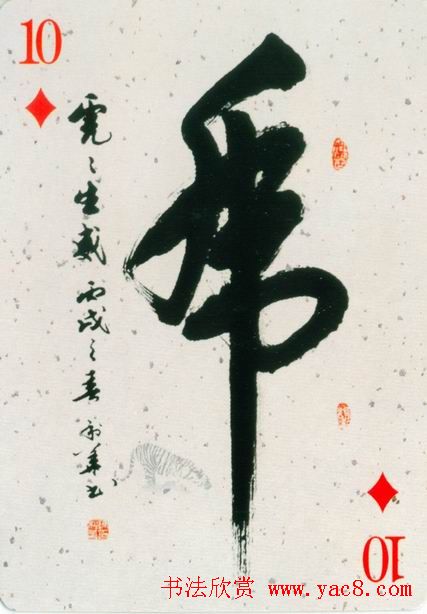 10
虎
虎〻生威 丙戌之春 书
10
书法欣赏 www.yac8.com